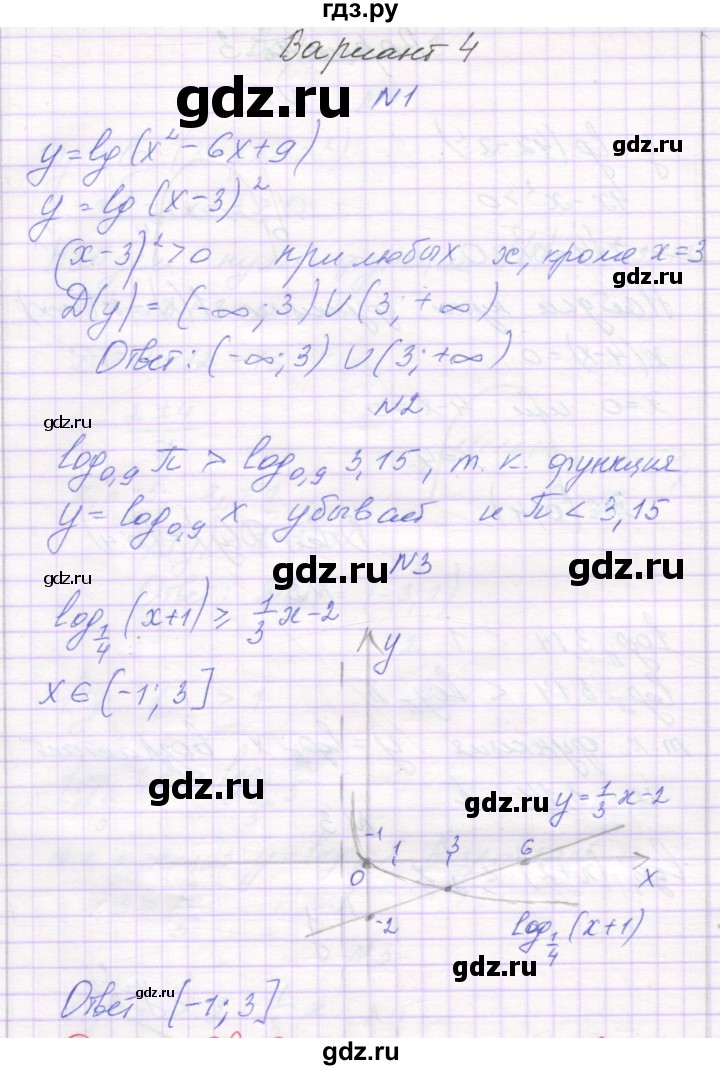 гдз.ру
Вариант 4
gdz.ru
N1
y=lg(x²-6x+9)
gdz.ru
y=lg(x-3)²
(x-3)²>0 при любых x, кроме x=3
gdz.ru
D(y)=(-∞;3)∪(3;+∞)
Ответ: (-∞;3)∪(3;+∞)
N2
gdz.ru
log₀,₉ π > log₀,₉ 3,15, т.к. функция
y=log₀,₉ x убывает и π<3,15
gdz.ru
gdz.ru
gdz.ru
N3
log_{1/4}(x+1) ≥ 1/3 x-2
y
x∈(-1;3]
gdz.ru
gdz.ru
y=1/3 x-2
-1 1 3 6
0 x
-2
log_{1/4}(x+1)
gdz.ru
Ответ (-1;3]
gdz.ru
gdz.ru